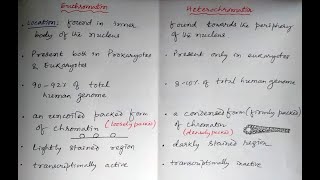 Euchromatin
Location: found in inner
body of the nucleus
Present both in Prokaryotes
& Eukaryotes
90-92% of total
human genome
an uncoiled packed form
of chromatin (loosely packed)
Lightly stained region
transcriptionally active
Heterochromatin
found towards the periphery
of the nucleus
Present only in eukaryotes
8-10% of total human genome
a condensed form (firmly packed)
of chromatin
(densely packed)
darkly stained region
transcriptionally inactive